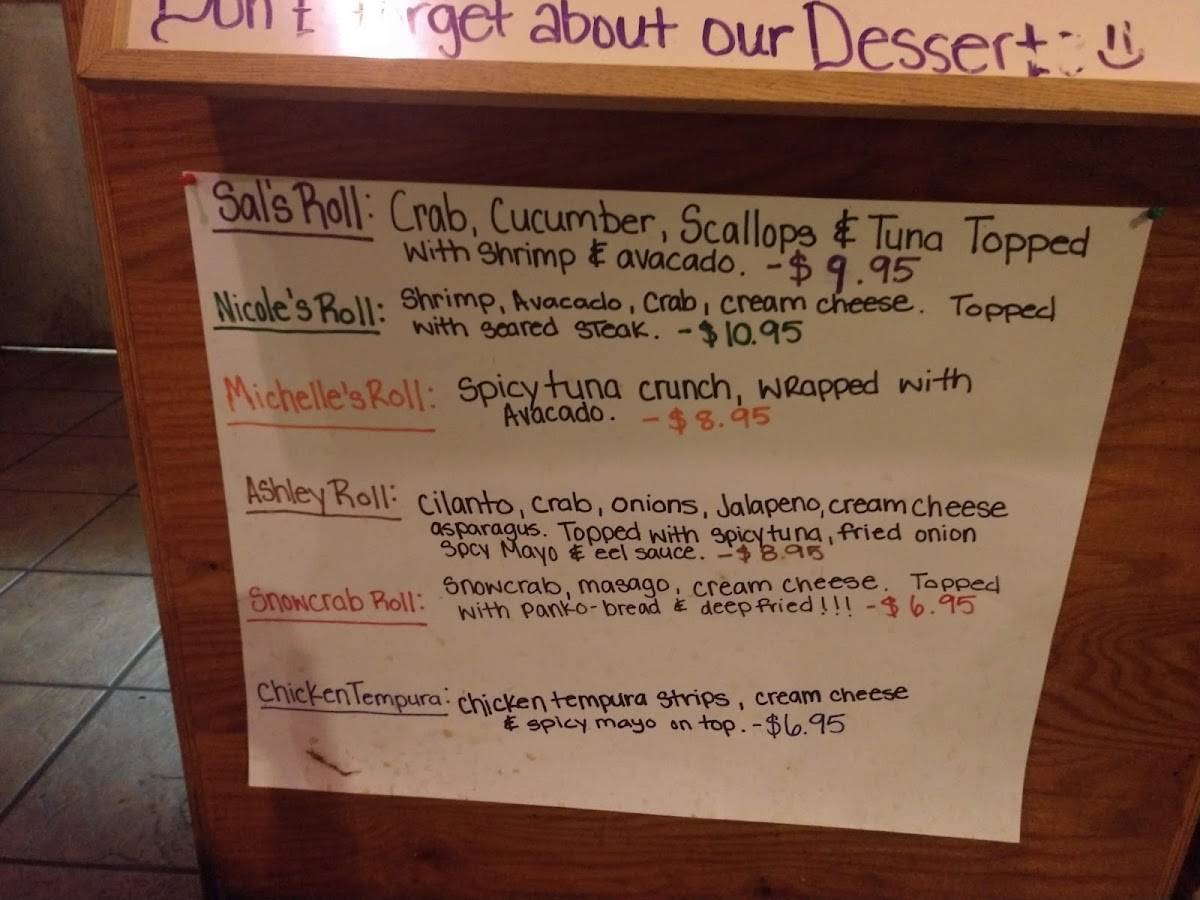 Don't forget about our Dessert :)
Sal's Roll: Crab, Cucumber, Scallops & Tuna Topped
With Shrimp & avacado. - $9.95
Nicole's Roll: Shrimp, Avacado, Crab, cream cheese. Topped
with seared steak. - $10.95
Michelle's Roll: Spicy tuna crunch, wrapped with
Avacado. - $8.95
Ashley Roll: Cilanto, crab, onions, Jalapeno, cream cheese
asparagus. Topped with spicy tuna, fried onion
Spcy Mayo & eel sauce. - $8.95
Snowcrab Roll: Snowcrab, masago, cream cheese. Topped
with Panko-bread & deep fried!!! - $6.95
Chicken Tempura: Chicken tempura strips, cream cheese
& spicy mayo on top. - $6.95